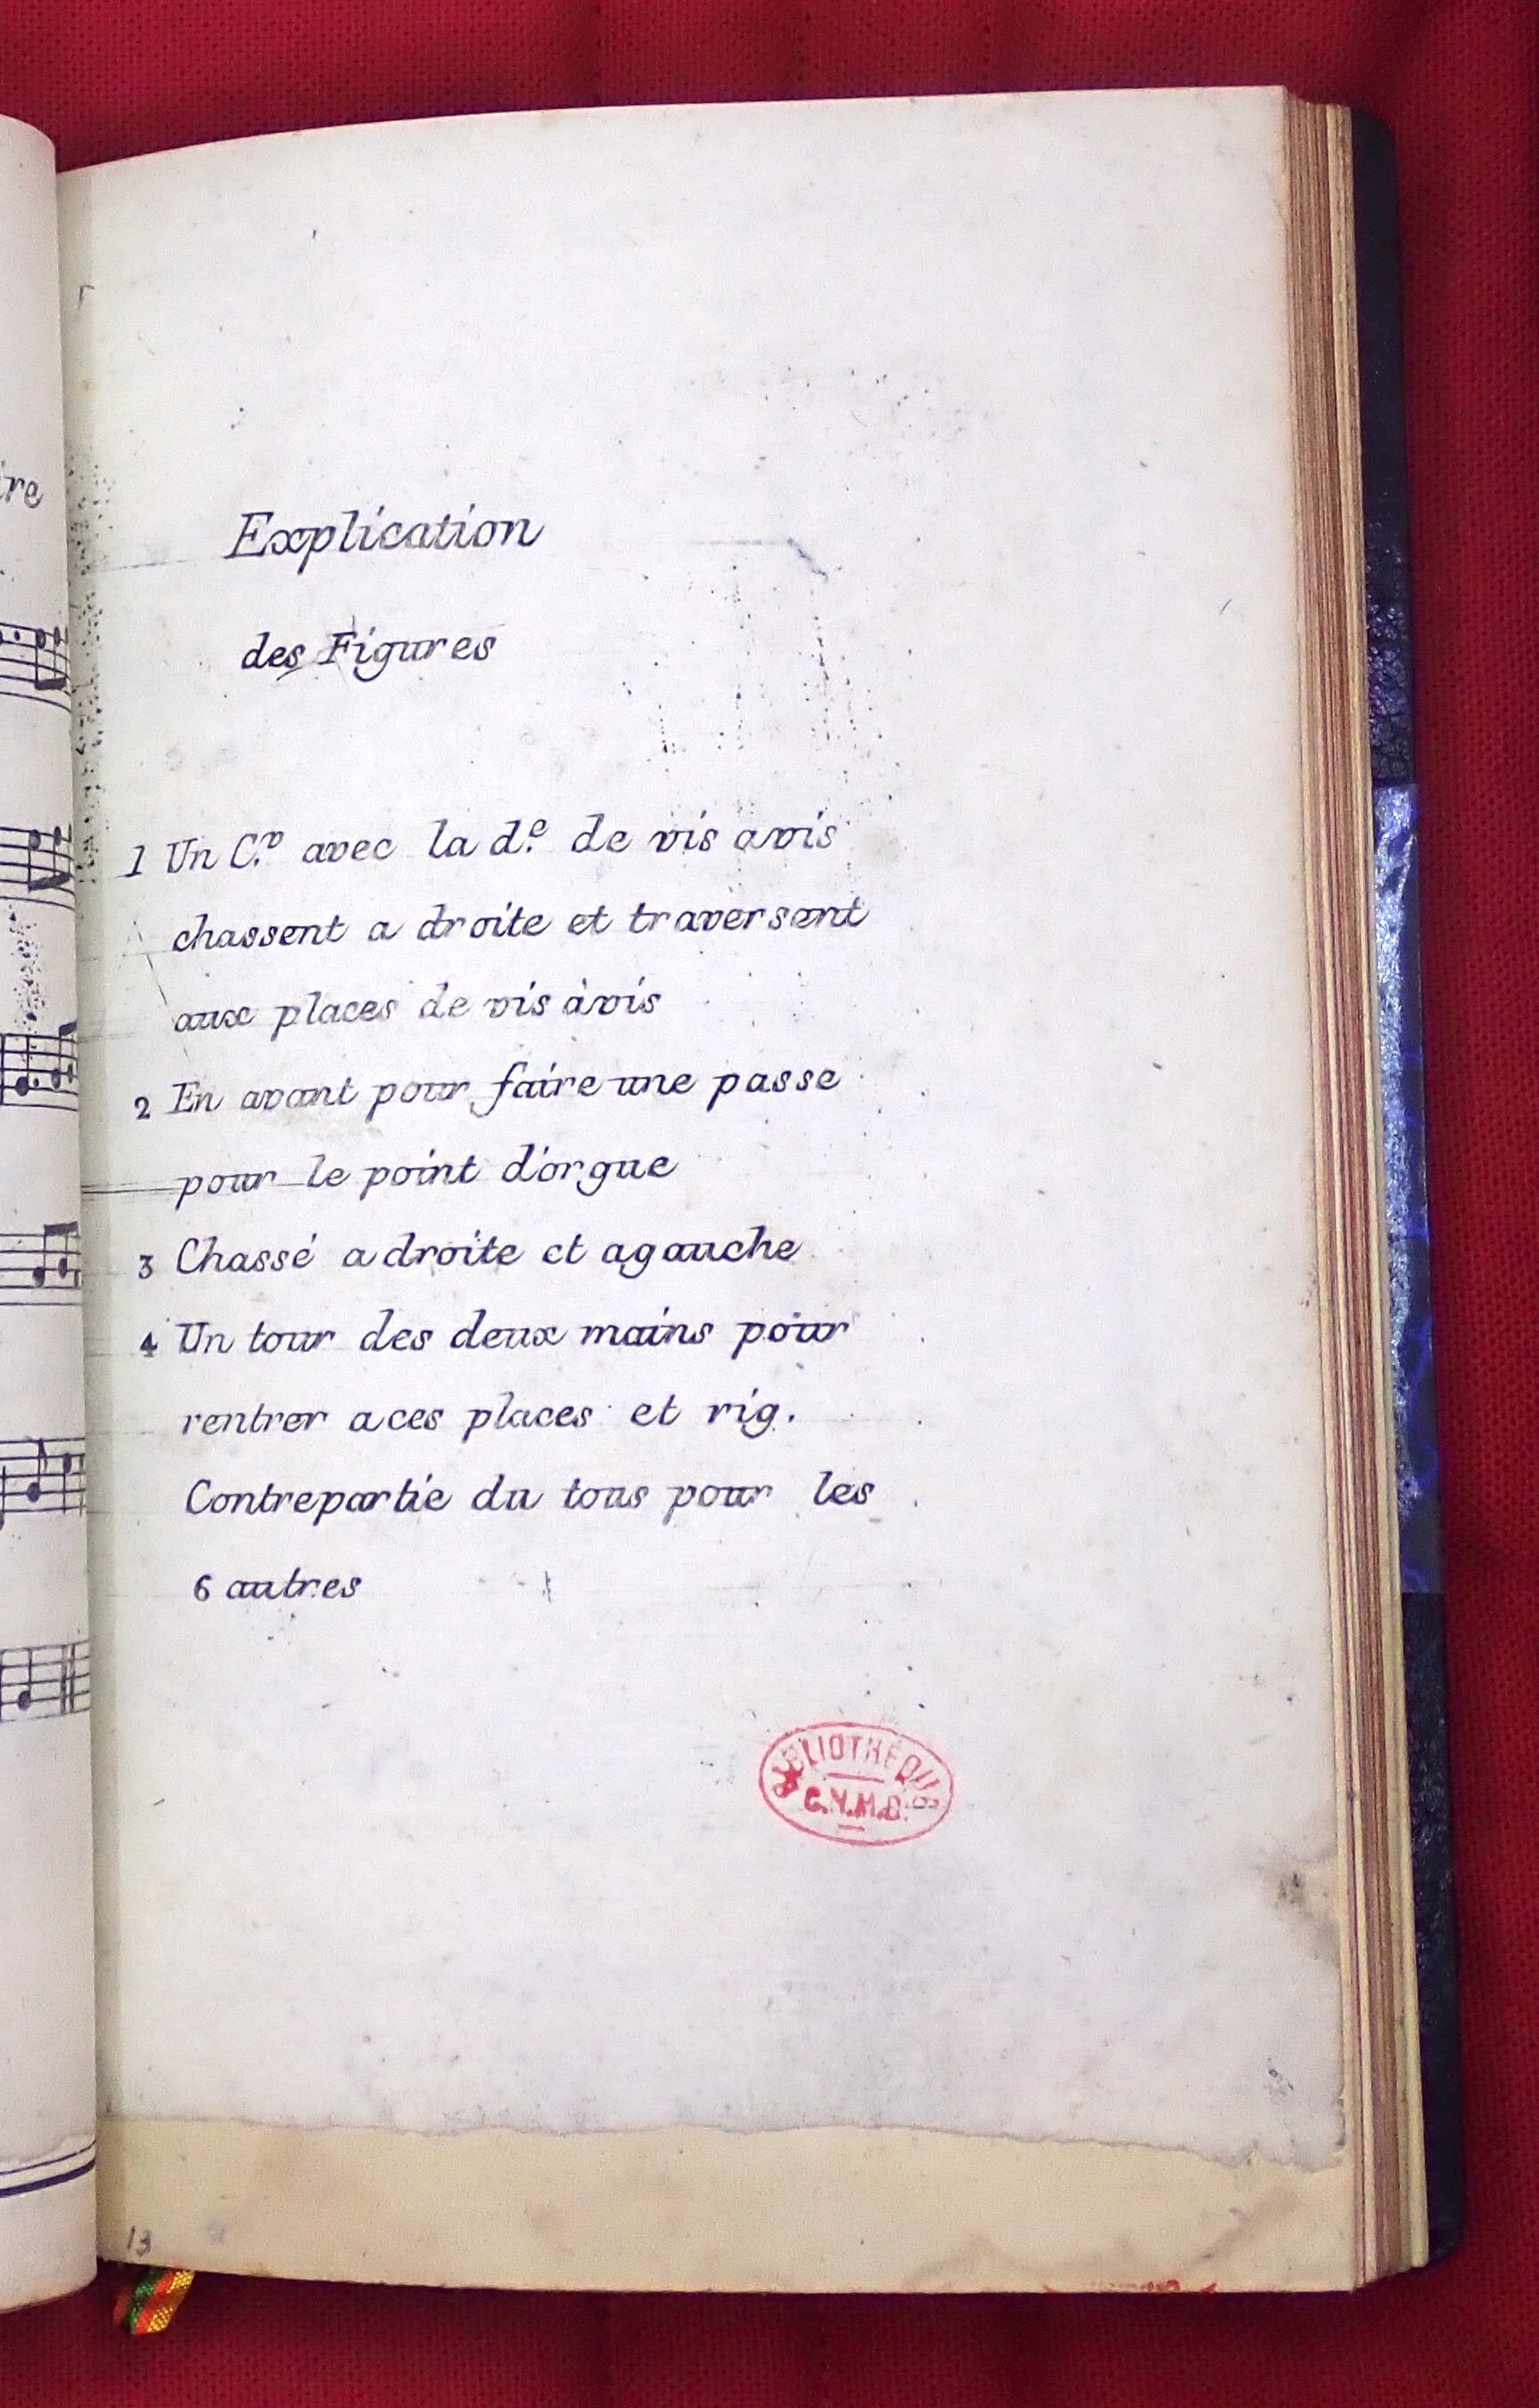 Explication
des Figures
1 Un C.r avec la d.e de vis avis
chassent a droite et traversent
aux places de vis àvis
2 En avant pour faire une passe
pour le point d'orgue
3 Chassé a droite et agauche
4 Un tour des deux mains pour
rentrer a ces places et rig.
Contrepartie du tous pour les
6 autres
BIBLIOTHÈQUE
13